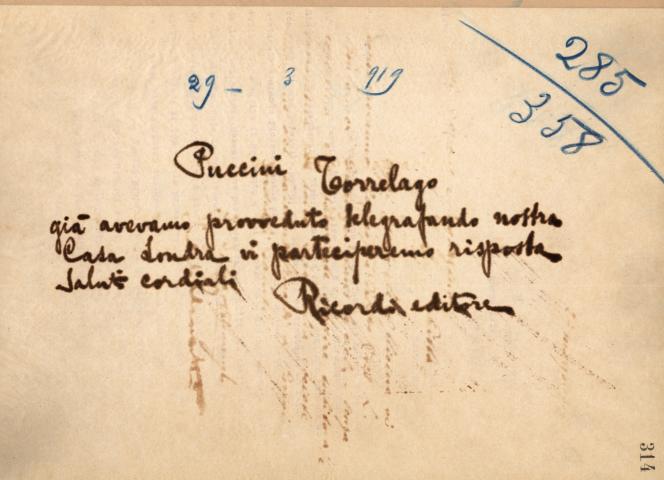 285
358
29 - 3 919
Puccini Torrelago
già avevamo provveduto telegrafando nostra
Casa Londra vi parteciperemo risposta
Saluti cordiali
Ricordi editore
314